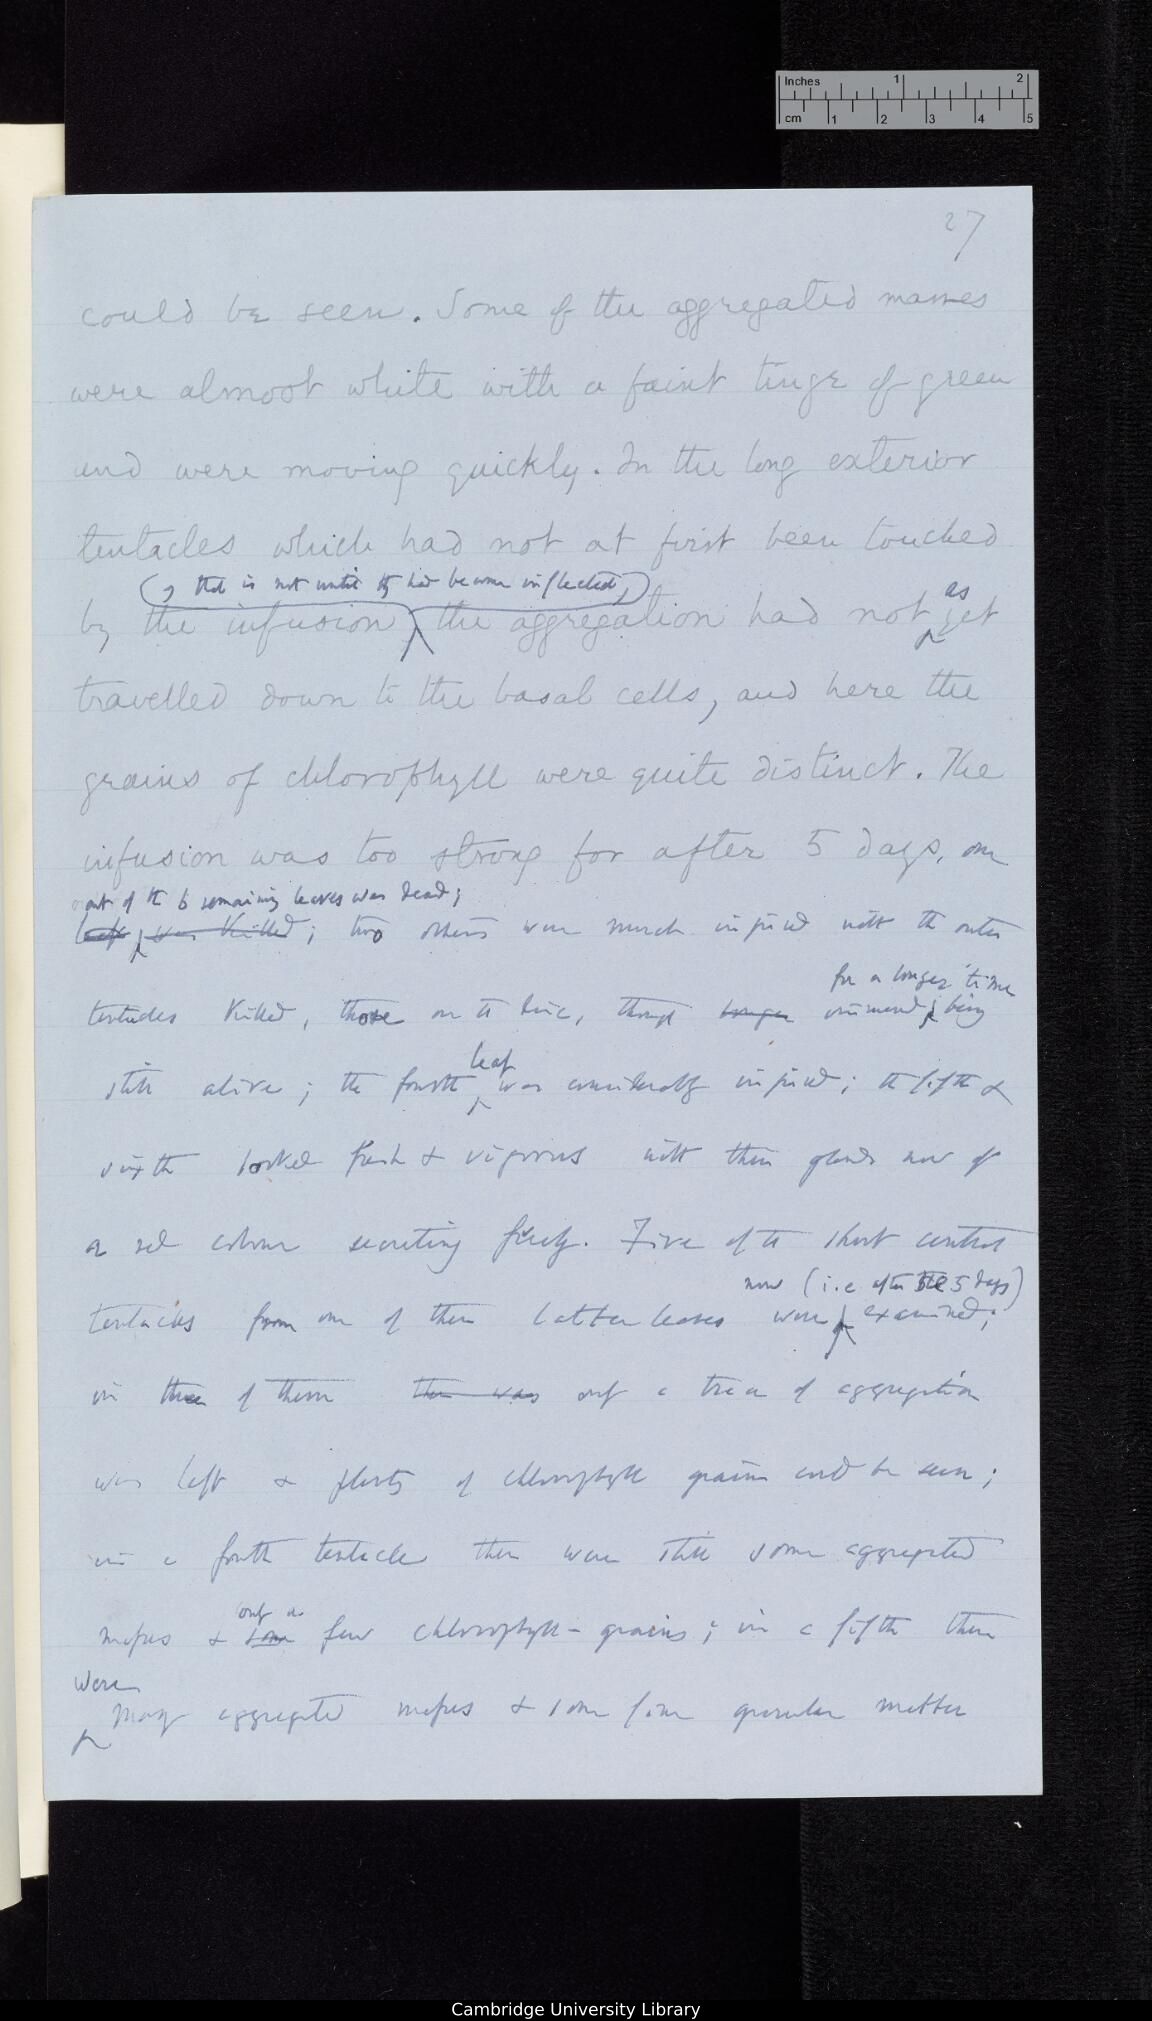 Inches 1 2
cm 1 2 3 4 5
27
could be seen. Some of the aggregated masses
were almost white with a faint tinge of green
and were moving quickly. In the long exterior
tentacles which had not at first been touched
(, that is not until they had become inflected,)
as
by the infusion the aggregation had not yet
travelled down to the basal cells, and here the
grains of chlorophyll were quite distinct. The
infusion was too strong for after 5 days, one
out of the 6 remaining leaves was dead;
leaf was killed; two others were much injured with the outer
for a longer time
tentacles killed, those on the disc, though longer immersed, being
leaf
still alive; the fourth was considerably injured; the fifth &
sixth looked fresh & vigorous with their glands now of
a red colour secreting freely. Five of the short central
now (i.e after the 5 days)
tentacles from one of these latter leaves were examined;
in three of them there was only a trace of aggregation
was left & plenty of chlorophyll grains could be seen;
in a fourth tentacle there were still some aggregated
only a
masses & some few chlorophyll-grains; in a fifth there
were
many aggregated masses & some fine granular matter
Cambridge University Library